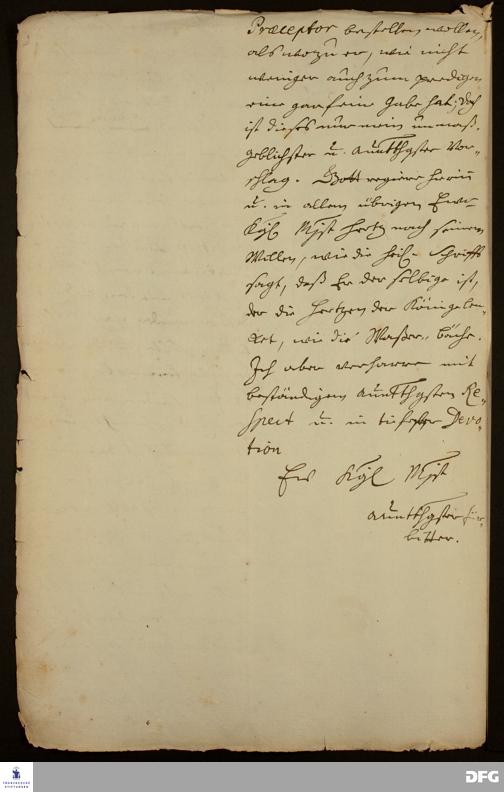 Præceptor bestellen wollen,
als wozu er, wie nicht
weniger auch zum predigen
eine gar feine Gabe hat; doch
ist dieses nur mein unmaß-
geblichster u. allerunterthgster Vor-
schlag. Gott regiere hierin
u. in allem übrigen Ew.
Kgl Mjst Hertz nach seinem
Willen, wie die heil. Schrifft
sagt, daß Er der selbige ist,
der die Hertzen der Könige len-
cket, wie die Waßer-bäche.
Ich aber verharre mit
beständigem Re-
spect u. in tiefster Devo-
tion
Ew Kgl Mjst
für-
bitter.
FRANCKESCHE
STIFTUNGEN
DFG